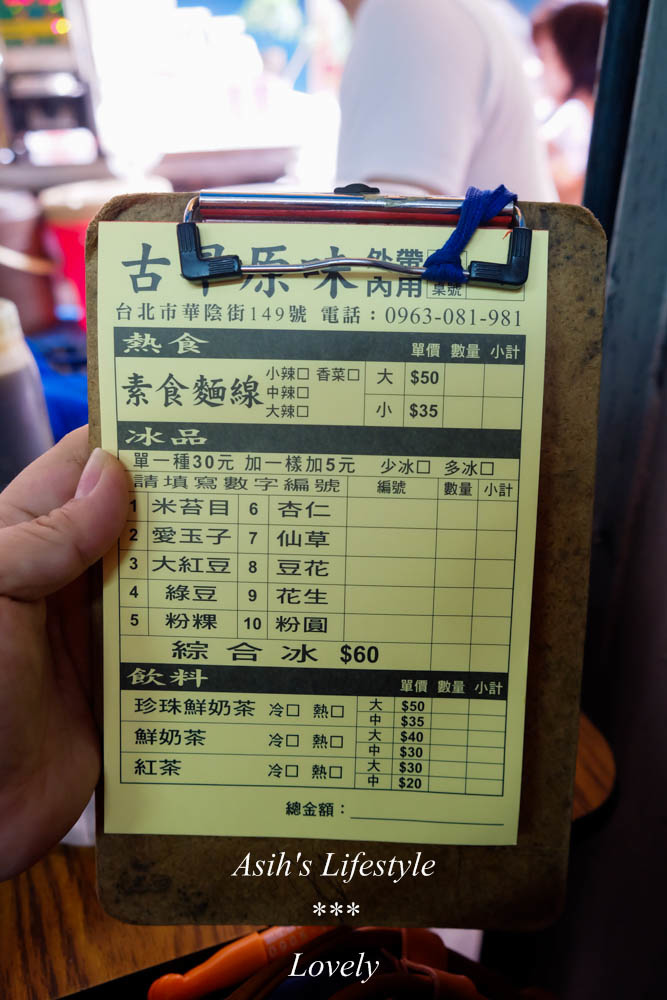 古早原味 外帶 內用 桌號
台北市華陰街149號 電話：0963-081-981
熱食 單價 數量 小計
素食麵線 小辣□ 香菜□ 中辣□ 大辣□ 大 $50
小 $35
冰品
單一種30元 加一樣加5元 少冰□ 多冰□
請填寫數字編號 編號 數量 小計
1 米苔目 6 杏仁
2 愛玉子 7 仙草
3 大紅豆 8 豆花
4 綠豆 9 花生
5 粉粿 10 粉圓
綜合冰 $60
飲料 單價 數量 小計
珍珠鮮奶茶 冷□ 熱□ 大 $50
中 $35
鮮奶茶 冷□ 熱□ 大 $40
中 $30
紅茶 冷□ 熱□ 大 $30
中 $20
總金額：
Asih's Lifestyle
***
Lovely